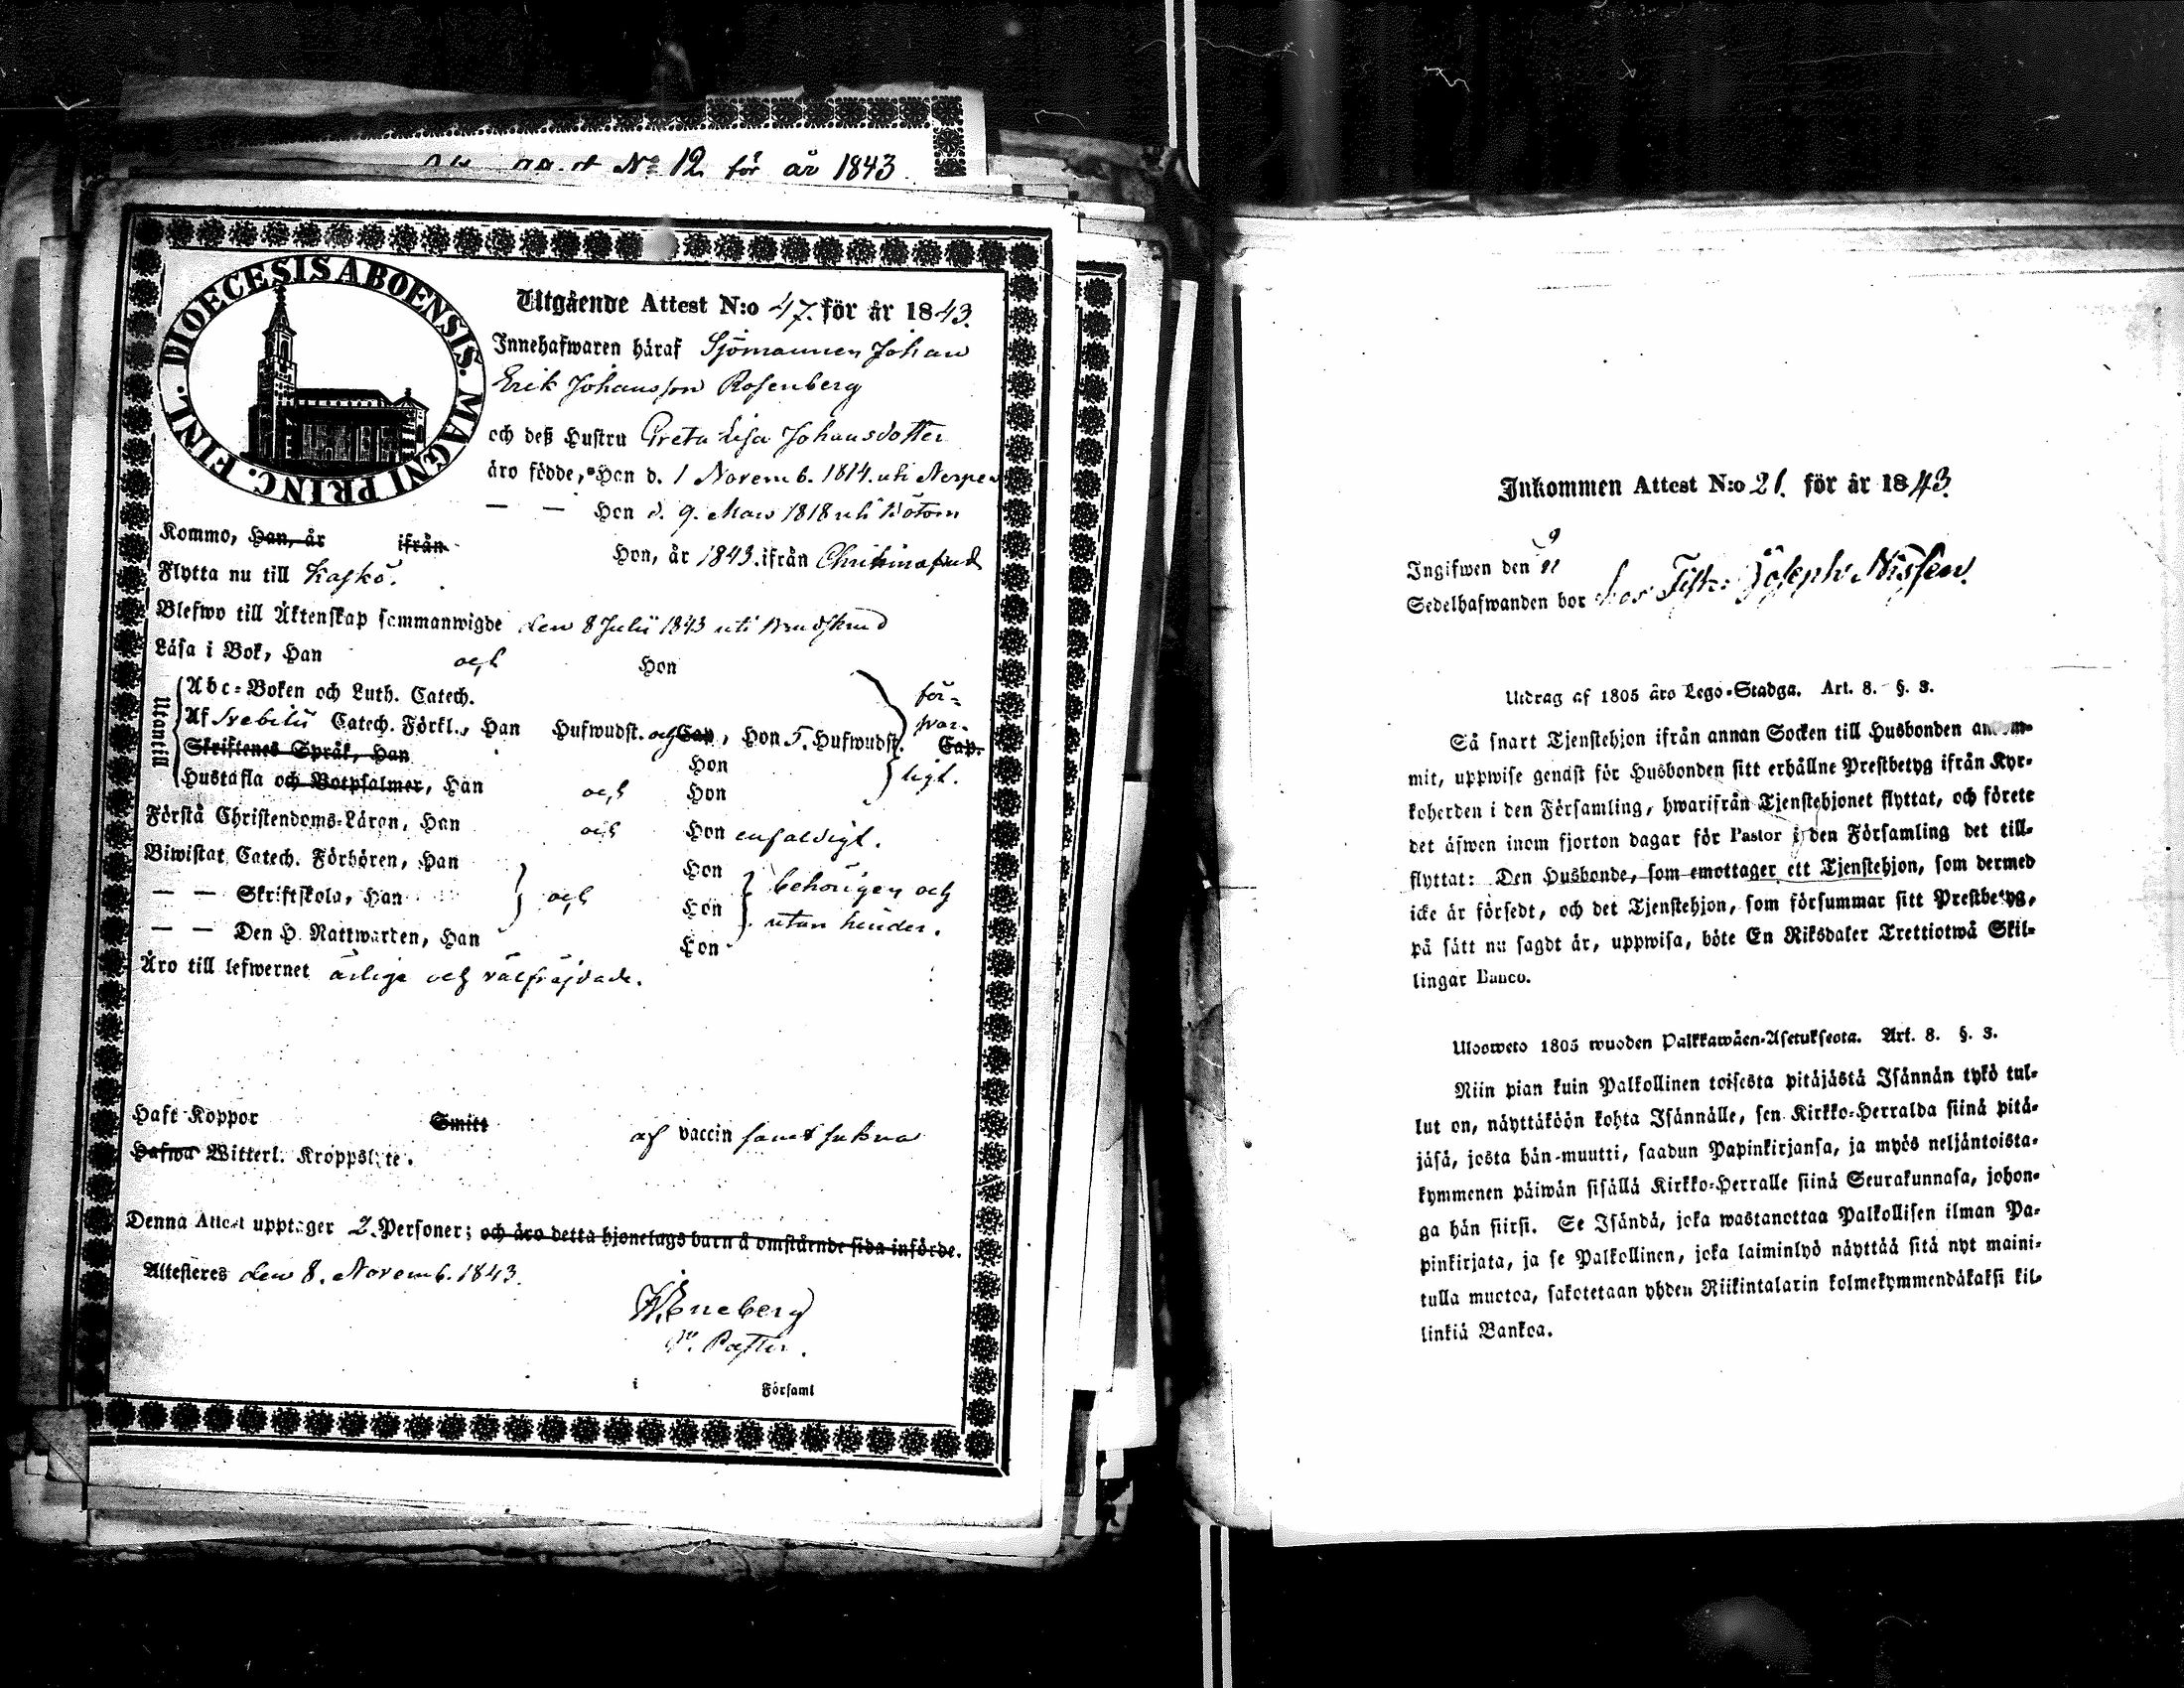 No 12 för år 1843.
DIOECESIS ABOENSIS. MAGNI PRINC. FINL.
Utgående Attest N:o 47. för år 1843.
Innehafwaren häraf Sjömannen Johan
Erik Johansson Rosenberg
och deß Hustru Greta Lisa Johansdotter
äro födde, Han d. 1 Novemb. 1814. uti Nerpes
— — Hon d. 9. Mars 1818 uti Bötom
Kommo, Han, år ifrån Hon, år 1843. ifrån Christinæstad
Flytta nu till Kaskö.
Blefwo till Äktenskap sammanwigde den 8 Julii 1843 uti
Läsa i Bok, Han och Hon
Utantill
Abc-Boken och Luth. Catech.
Af Svebilii Catech. Förkl., Han Hufwudst. och Cap, Hon 5. Hufwudst. Cap.
Skriftenes Språk, Han Hon
Hustafla och Botpsalmer, Han och Hon
för-
svar-
ligt.
Förstå Christendoms-Läran, Han och Hon enfaldigt.
Biwistat Catech. Förhören, Han Hon
— — Skriftskola, Han och Hon behörigen och
— — Den H. Nattwarden, Han Hon utan hinder.
Äro till lefwernet ärliga och välfräjdade.
Haft Koppor Smitt af vaccin samt sakna
Hafwa Witterl. Kroppslyte.
Denna Attest upptager 2. Personer; och äro detta hjonelags barn å omstående sida införde.
Attesteres den 8. Novemb. 1843.
Eneberg
V. Pastor.
i Församl
Inkommen Attest N:o 21. för år 1843.
Ingifwen den
Sedelhafwanden bor hos Josephi Nissen.
Utdrag af 1805 års Lego-Stadga. Art. 8. §. 3.
Så snart Tjenstehjon ifrån annan Socken till Husbonden ankom-
mit, uppwise genast för Husbonden sitt erhållne Prestbetyg ifrån Kyr-
koherden i den Församling, hwarifrån Tjenstehjonet flyttat, och förete
det äfwen inom fjorton dagar för Pastor i den Församling det till-
flyttat: Den Husbonde, som emottager ett Tjenstehjon, som dermed
icke är försedt, och det Tjenstehjon, som försummar sitt Prestbetyg,
på sätt nu sagdt är, uppwisa, böte En Riksdaler Trettiotwå Skil-
lingar Banco.
Ulosweto 1805 wuoden Palkkawäen-Asetuksesta. Art. 8. §. 3.
Niin pian kuin Palkollinen toisesta pitäjästä Isännän tykö tul-
lut on, näyttäköön kohta Isännälle, sen Kirkko-Herralda siinä pitä-
jäsä, josta hän muutti, saadun Papinkirjansa, ja myös neljäntoista-
kymmenen päiwän sisällä Kirkko-Herralle siinä Seurakunnasa, johon-
ga hän siirsi. Se Isändä, joka wastanottaa Palkollisen ilman Pa-
pinkirjata, ja se Palkollinen, joka laiminlyö näyttää sitä nyt maini-
tulla muotoa, sakotetaan yhden Riikintalarin kolmekymmendäkaksi kil-
linkiä Bankoa.